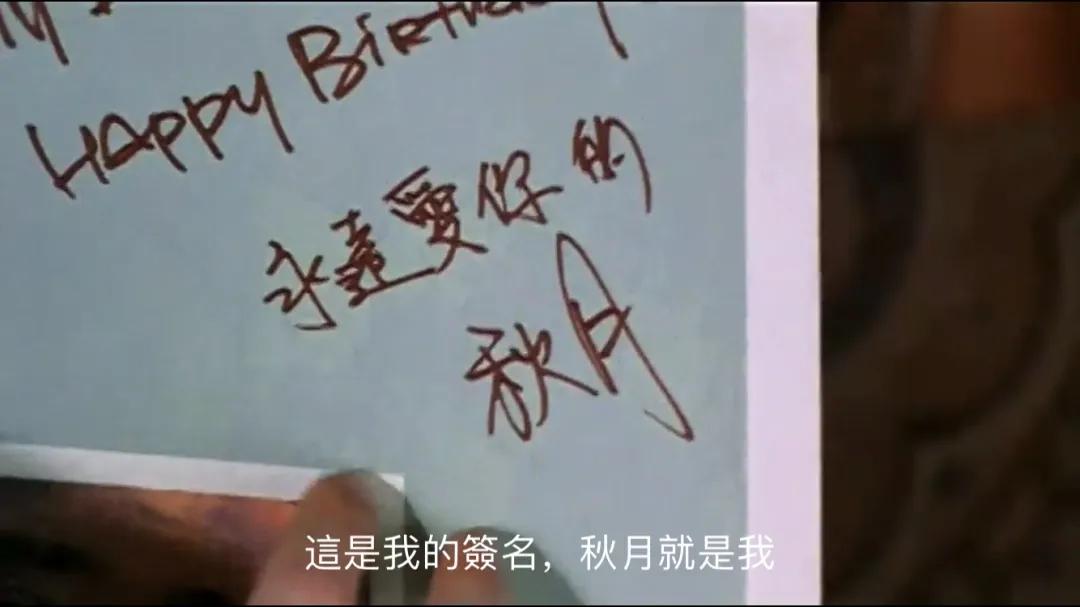 Happy Birthday
永遠愛你的
秋月
這是我的簽名，秋月就是我